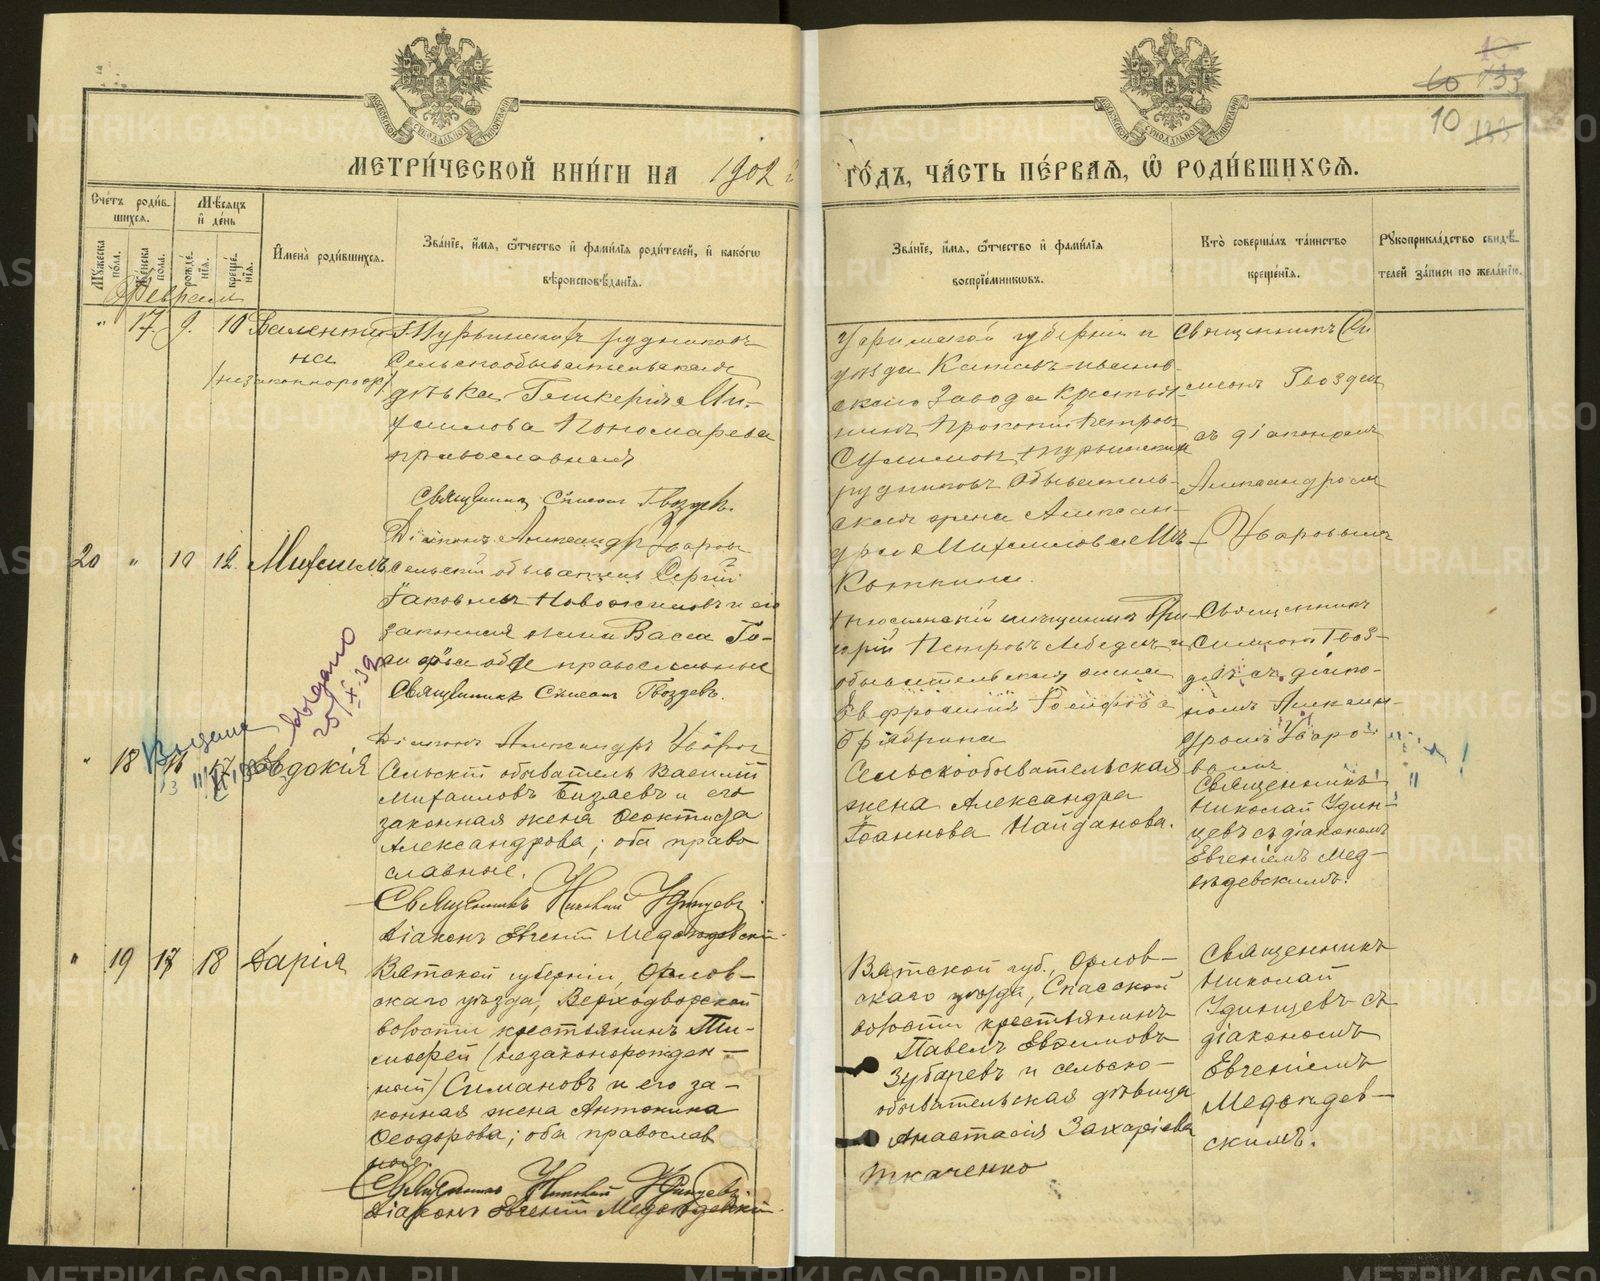 МЕТРИ́ЧЕСКОЙ КНИ́ГИ НА 1902 г
ГО́ДЪ, ЧА́СТЬ ПЕ́РВАЯ, Ѽ РОДИ́ВШИХСЯ.
10
133
Сче́тъ роди́в-
шихся.
Мѣ́сяцъ
и де́нь
Му́жеска по́ла.
Же́нска по́ла.
рожде́нїя.
креще́нїя.
И́мена̀ роди́вшихся.
Зва́нїе, и́мя, ѻ́тчество и фами́лїя роди́телей, и како́гѡ
вѣроисповѣ́данїя.
Зва́нїе, и́мя, ѻ́тчество и фами́лїя
воспрїе́мниковъ.
Кто̀ соверша́лъ та́инство
креще́нїя.
Рꙋкоприкла́дство свидѣ́-
телей за́писи по жела́нїю.
Февраль
" 17 9 10 Валенти
на
/незаконнорожд/
Турьинскихъ рудниковъ
Сельскообывательская
дѣвка Гликерія Ми-
хаилова Пономарева
православная
Священникъ Симеонъ Гвоздевъ.
Діаконъ Александръ Уваровъ
Уфимской губерніи и
уѣзда Катавъ-Иванов-
скаго Завода крестья-
нинъ Прокопій Петровъ
Турьинскихъ
рудниковъ обыватель-
ская жена Алексан-
дра Михаилова
Священникъ Си-
меонъ Гвоздевъ
съ діакономъ
Александромъ
Уваровымъ
20 " 10 12 Михаилъ
Сельскій обыватель Сергій
Іаковлевъ Новожиловъ и его
законная жена Васса Іо-
сифова оба православные
Священникъ Симеонъ Гвоздевъ.
Діаконъ Александръ Уваровъ
мѣщанинъ Гри-
горій Петровъ Лебедевъ и
обывательская жена
Евфросинія Іосифова
Священникъ
Симеонъ Гвоз-
девъ съ діако-
номъ Алексан-
дромъ Уваро-
вымъ
Выдана
выдано
25/X.39
" 18 16 17 Евдокія
Сельскій обыватель Василій
Михаиловъ Бизяевъ и его
законная жена Ѳеоктиста
Александрова; оба право
славные.
Священникъ Николай Удинцевъ
Діаконъ Евгеній Медвѣдевскій.
Сельскообывательская
жена Александра
Іоаннова Найданова.
Священникъ
Николай Удин-
цевъ съ діакономъ
Евгеніемъ Мед-
вѣдевскимъ.
" 19 17 18 Дарія
Вятской губерніи, Орлов-
скаго уѣзда, Верходворской
волости крестьянинъ Ти-
моѳей (незаконорожден-
ной) Симановъ и его за-
конная жена Антонина
Ѳеодорова; оба православ
ные.
Священникъ Николай Удинцевъ.
Діаконъ Евгеній Медвѣдевскій.
Вятской губ., Орлов-
скаго уѣзда, Спасской
волости крестьянинъ
Павелъ Евѳимовъ
Зубаревъ и сельско-
обывательская дѣвица
Анастасія Захаріева
Ткаченко
Священникъ
Николай
Удинцевъ съ
діакономъ
Евгеніемъ
Медвѣдев-
скимъ.
METRIKI.GASO-URAL.RU